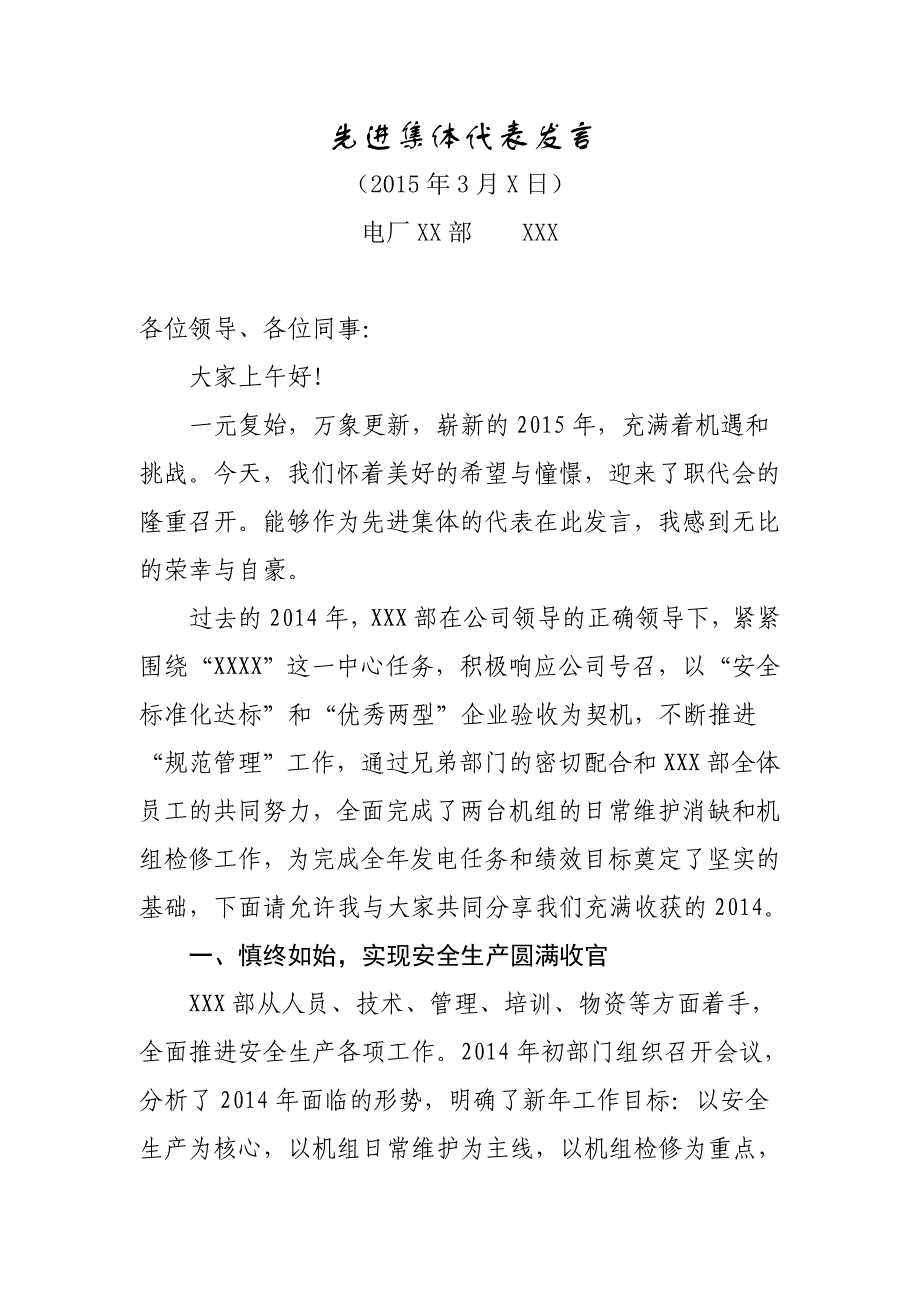 先进集体代表发言
（2015年3月X日）
电厂XX部 XXX
各位领导、各位同事：
大家上午好！
一元复始，万象更新，崭新的2015年，充满着机遇和
挑战。今天，我们怀着美好的希望与憧憬，迎来了职代会的
隆重召开。能够作为先进集体的代表在此发言，我感到无比
的荣幸与自豪。
过去的2014年，XXX部在公司领导的正确领导下，紧紧
围绕“XXXX”这一中心任务，积极响应公司号召，以“安全
标准化达标”和“优秀两型”企业验收为契机，不断推进
“规范管理”工作，通过兄弟部门的密切配合和XXX部全体
员工的共同努力，全面完成了两台机组的日常维护消缺和机
组检修工作，为完成全年发电任务和绩效目标奠定了坚实的
基础，下面请允许我与大家共同分享我们充满收获的2014。
一、慎终如始，实现安全生产圆满收官
XXX部从人员、技术、管理、培训、物资等方面着手，
全面推进安全生产各项工作。2014年初部门组织召开会议，
分析了2014年面临的形势，明确了新年工作目标：以安全
生产为核心，以机组日常维护为主线，以机组检修为重点，